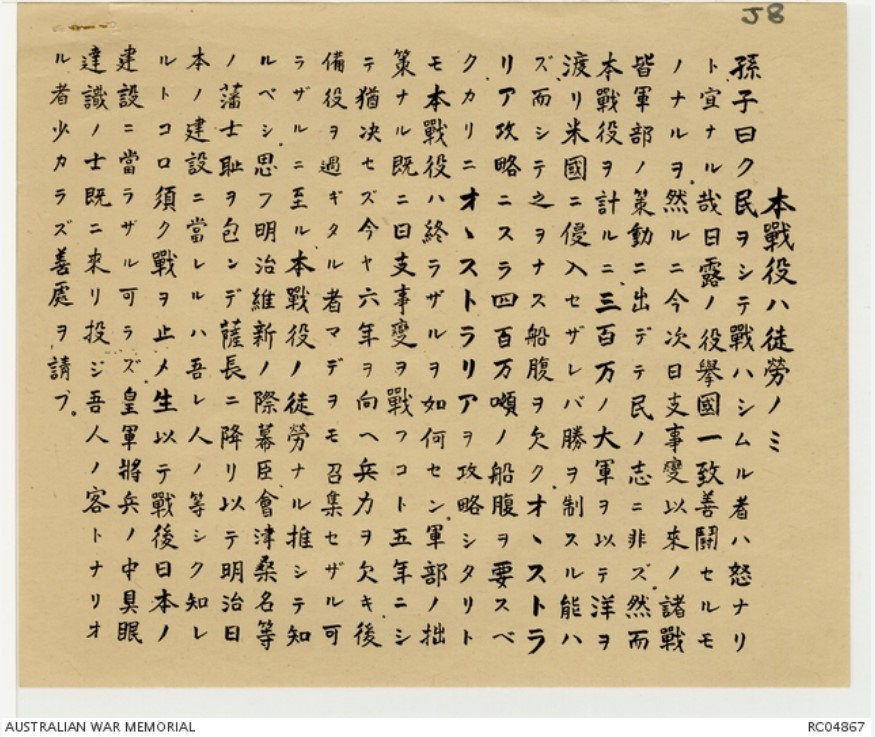 J8
本戰役ハ徒勞ノミ
孫子曰ク民ヲシテ戰ハシムル者ハ怒ナリ
ト宜ナル哉日露ノ役擧國一致善鬪セルモ
ノナルヲ.然ルニ今次日支事變以來ノ諸戰
皆軍部ノ策動ニ出デテ民ノ志ニ非ズ.然而
本戰役ヲ計ルニ三百万ノ大軍ヲ以テ洋ヲ
渡リ米國ニ侵入セザレバ勝ヲ制スル能ハ
ズ.而シテ之ヲナス船腹ヲ欠ク.オヽストラ
リア攻略ニスラ四百万噸ノ船腹ヲ要スベ
ク.カリニオヽストラリアヲ攻略シタリト
モ本戰役ハ終ラザルヲ如何セン.軍部ノ拙
策ナル既ニ日支事變ヲ戰フコト五年ニシ
テ猶決セズ今ヤ六年ヲ向ヘ兵力ヲ欠キ後
備役ヲ過ギタル者マデヲモ召集セザル可
ラザルニ至ル.本戰役ノ徒勞ナル推シテ知
ルベシ.思フ明治維新ノ際幕臣會津桑名等
ノ藩士恥ヲ包ンデ薩長ニ降リ以テ明治日
本ノ建設ニ當レルハ吾レ人ノ等シク知レ
ルトコロ須ク戰ヲ止メ生以テ戰後日本ノ
建設ニ當ラザル可ラズ.皇軍將兵ノ中具眼
達識ノ士既ニ來リ投ジ吾人ノ客トナリオ
ル者少カラズ善處ヲ請フ.
AUSTRALIAN WAR MEMORIAL
RC04867